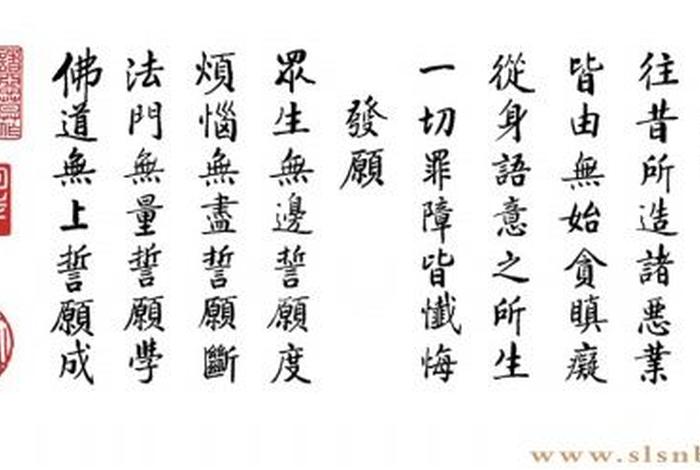 往昔所造諸惡業
皆由無始貪瞋癡
從身語意之所生
一切罪障皆懺悔
發願
眾生無邊誓願度
煩惱無盡誓願斷
法門無量誓願學
佛道無上誓願成
www.slsnl